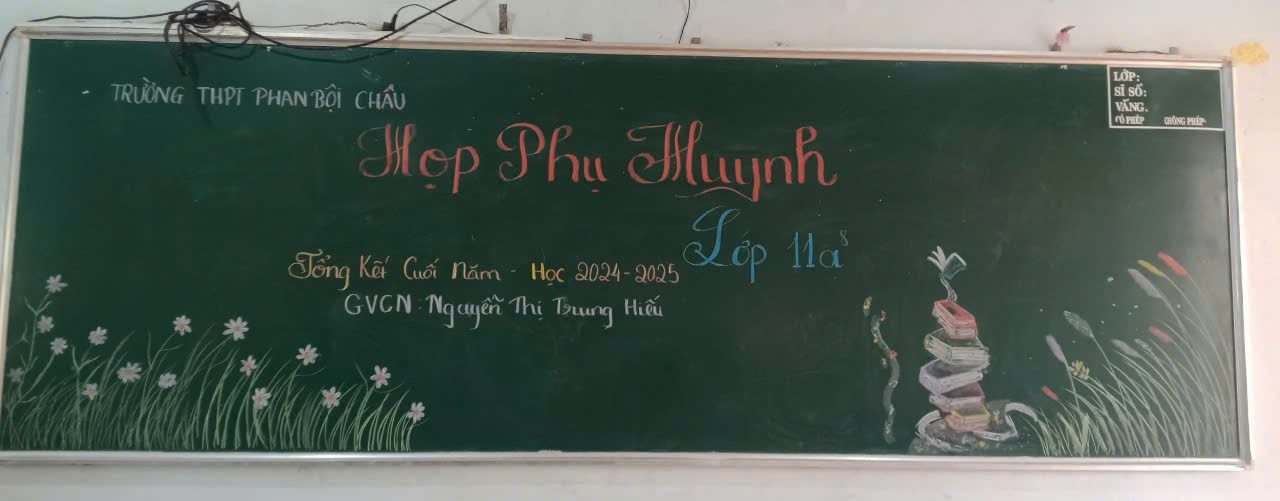 TRƯỜNG THPT PHAN BỘI CHÂU
Họp Phụ Huynh
Lớp 11a⁸
Tổng Kết Cuối Năm - Học 2024-2025
GVCN: Nguyễn Thị Trung Hiếu
LỚP:
SĨ SỐ:
VẮNG.
CÓ PHÉP KHÔNG PHÉP